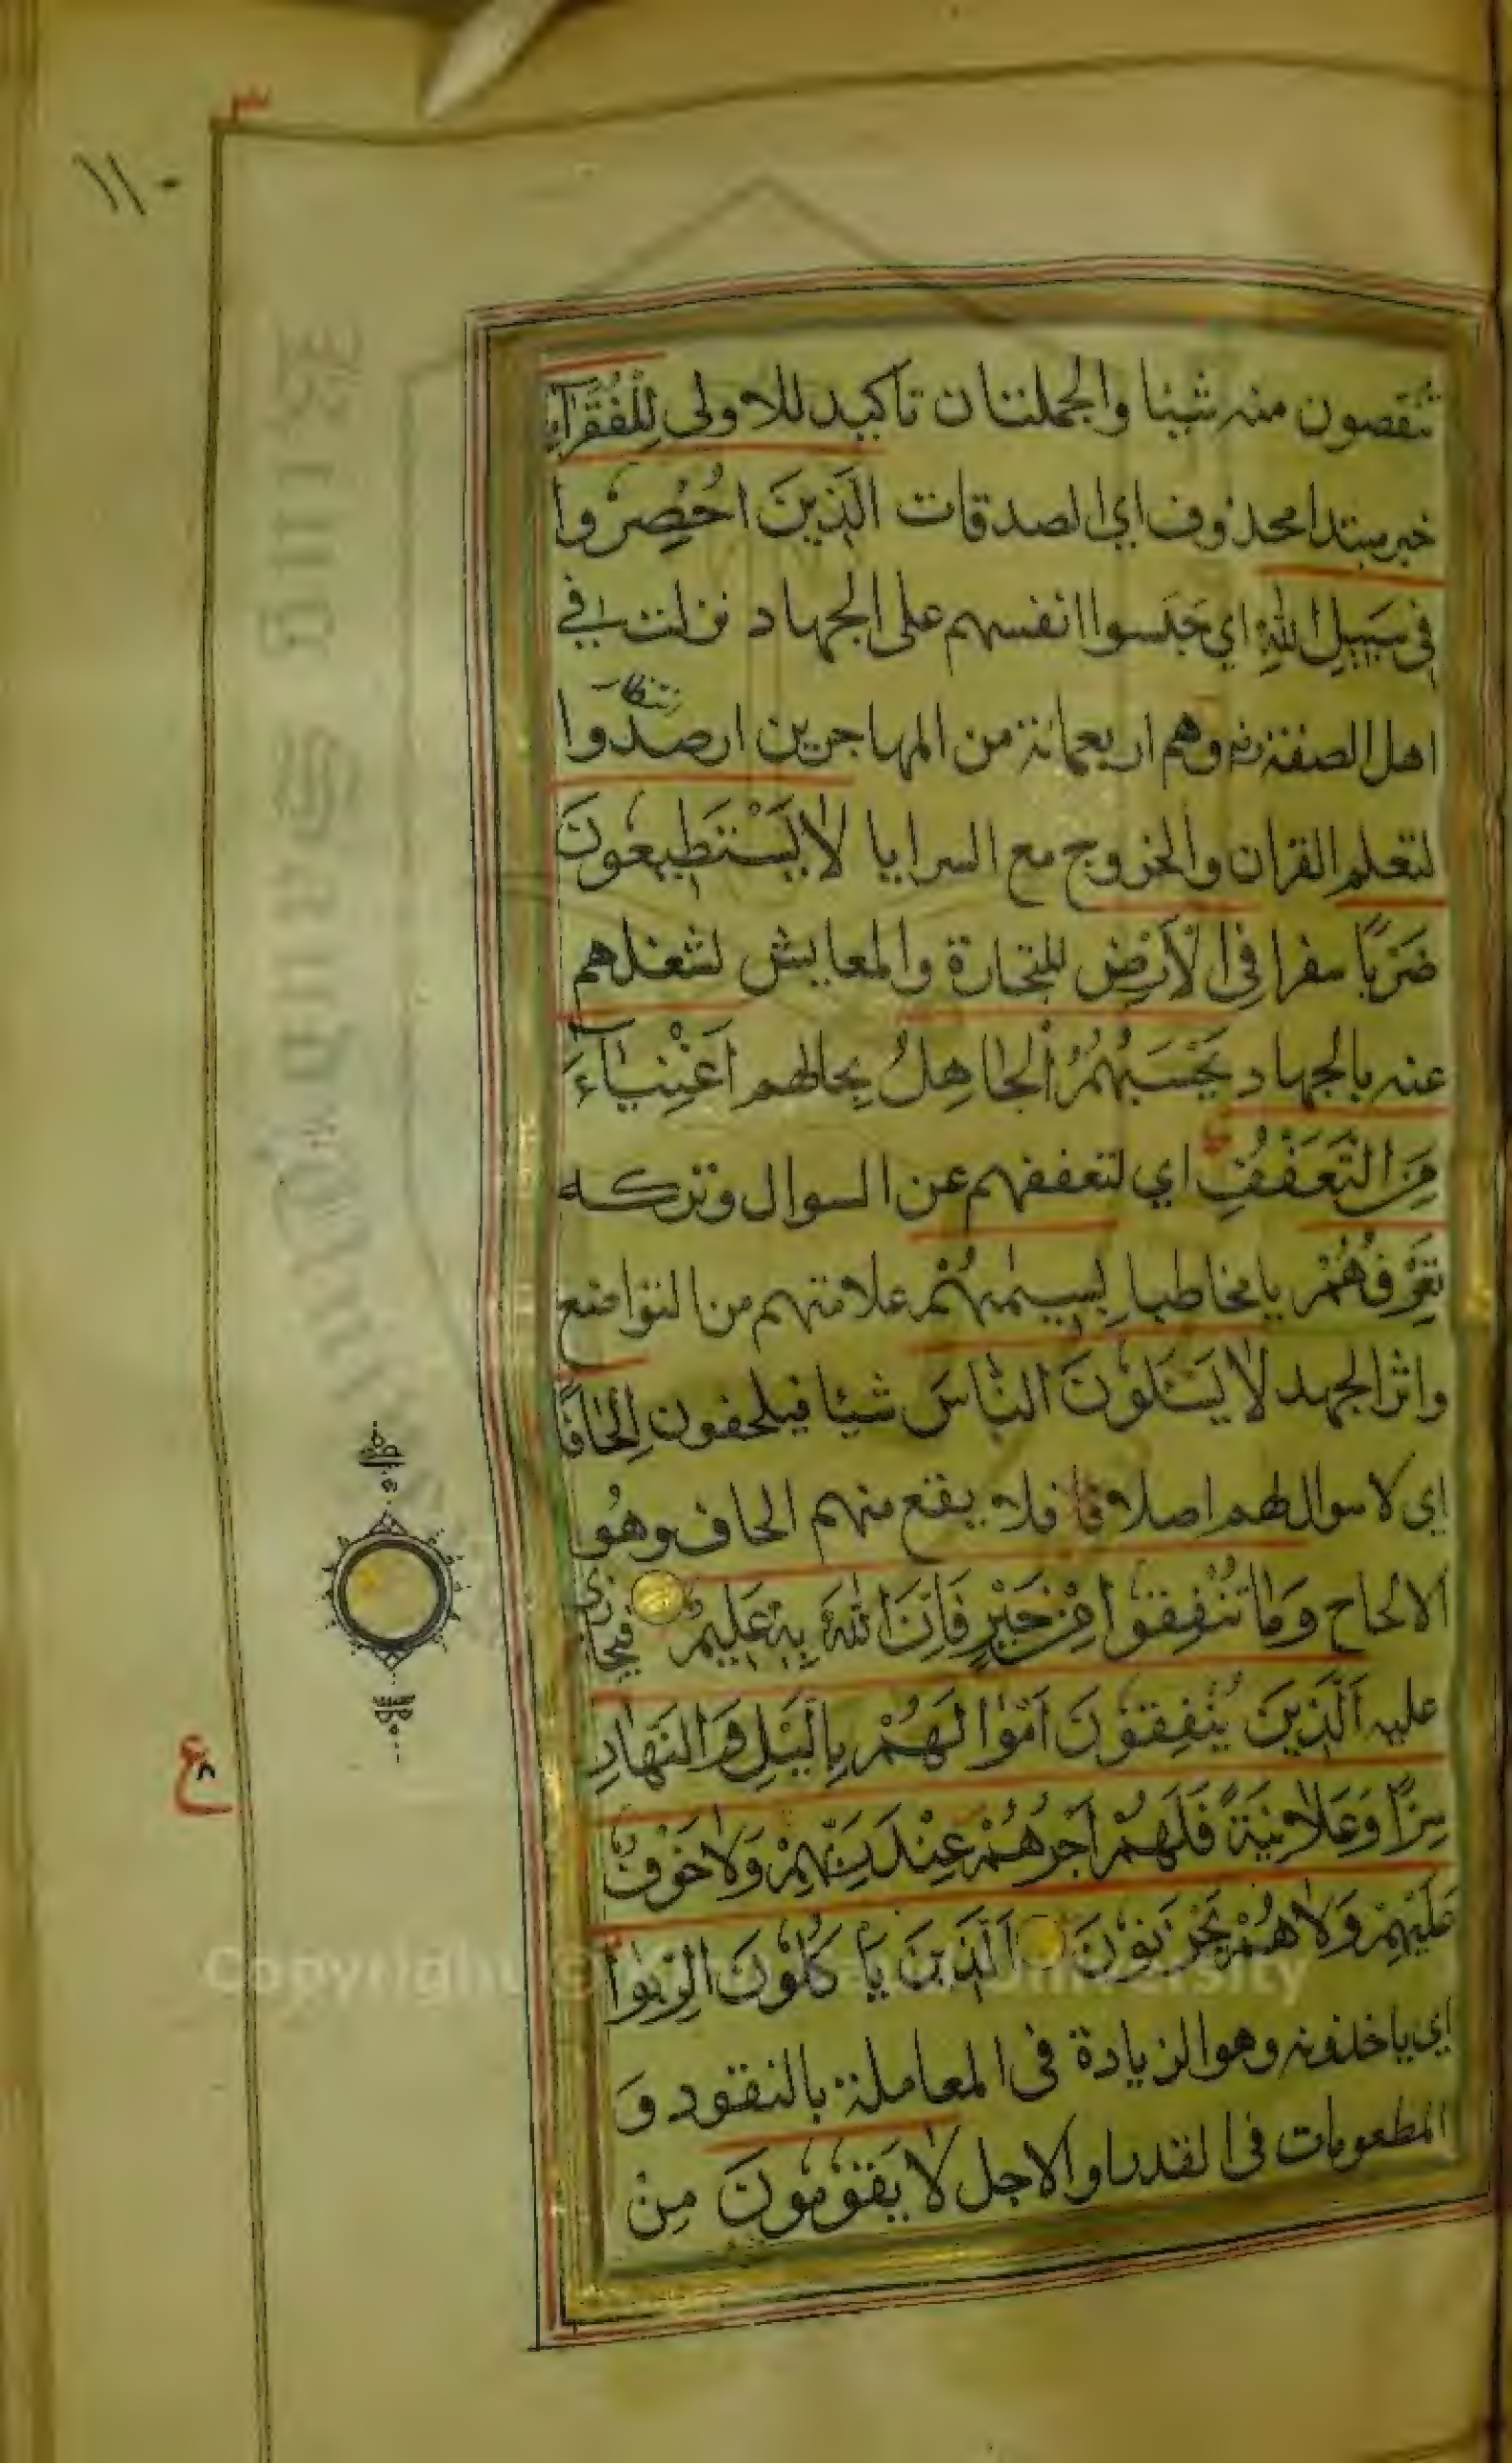 ٣
١١٠
تنقصون منه شيئا والجملتان تاكيد للاولى لِلْفُقَرَآءِ
خبر مبتدا محذوف اي الصدقات الَّذِينَ اُحْصِرُوا
فِى سَبِيلِ اللّٰهِ اي حَبَسوا انفسهم على الجهاد نزلت في
اهل الصفة وهم اربعمائة من المهاجرين ارصدوا
لتعلم القران والخروج مع السرايا لَا يَسْتَطِيعُونَ
ضَرْبًا سفرا فِى الْاَرْضِ للتجارة والمعايش لشغلهم
عنه بالجهاد يَحْسَبُهُمُ الْجَاهِلُ بحالهم اَغْنِيَآءَ
مِنَ التَّعَفُّفِ اي لتعففهم عن السوال وتركه
تَعْرِفُهُمْ يا مخاطبا بِسِيمٰهُمْ علامتهم من التواضع
واثر الجهد لَا يَسْـَٔلُونَ النَّاسَ شيئا فيلحفون اِلْحَافًا
اي لا سوال لهم اصلا فلا يقع منهم الحاف وهُو
الالحاح وَمَا تُنْفِقُوا مِنْ خَيْرٍ فَاِنَّ اللّٰهَ بِهٖ عَلِيمٌ فيجازي
عليه اَلَّذِينَ يُنْفِقُونَ اَمْوَالَهُمْ بِالَّيْلِ وَالنَّهَارِ
سِرًّا وَعَلَانِيَةً فَلَهُمْ اَجْرُهُمْ عِنْدَ رَبِّهِمْ وَلَا خَوْفٌ
عَلَيْهِمْ وَلَا هُمْ يَحْزَنُونَ اَلَّذِينَ يَاْكُلُونَ الرِّبٰوا
اي ياخذونه وهو الزيادة فى المعاملة بالنقود وَ
المطعومات فى القدر او الاجل لَا يَقُومُونَ مِنْ
ع
٨
Copyright © King Saud University